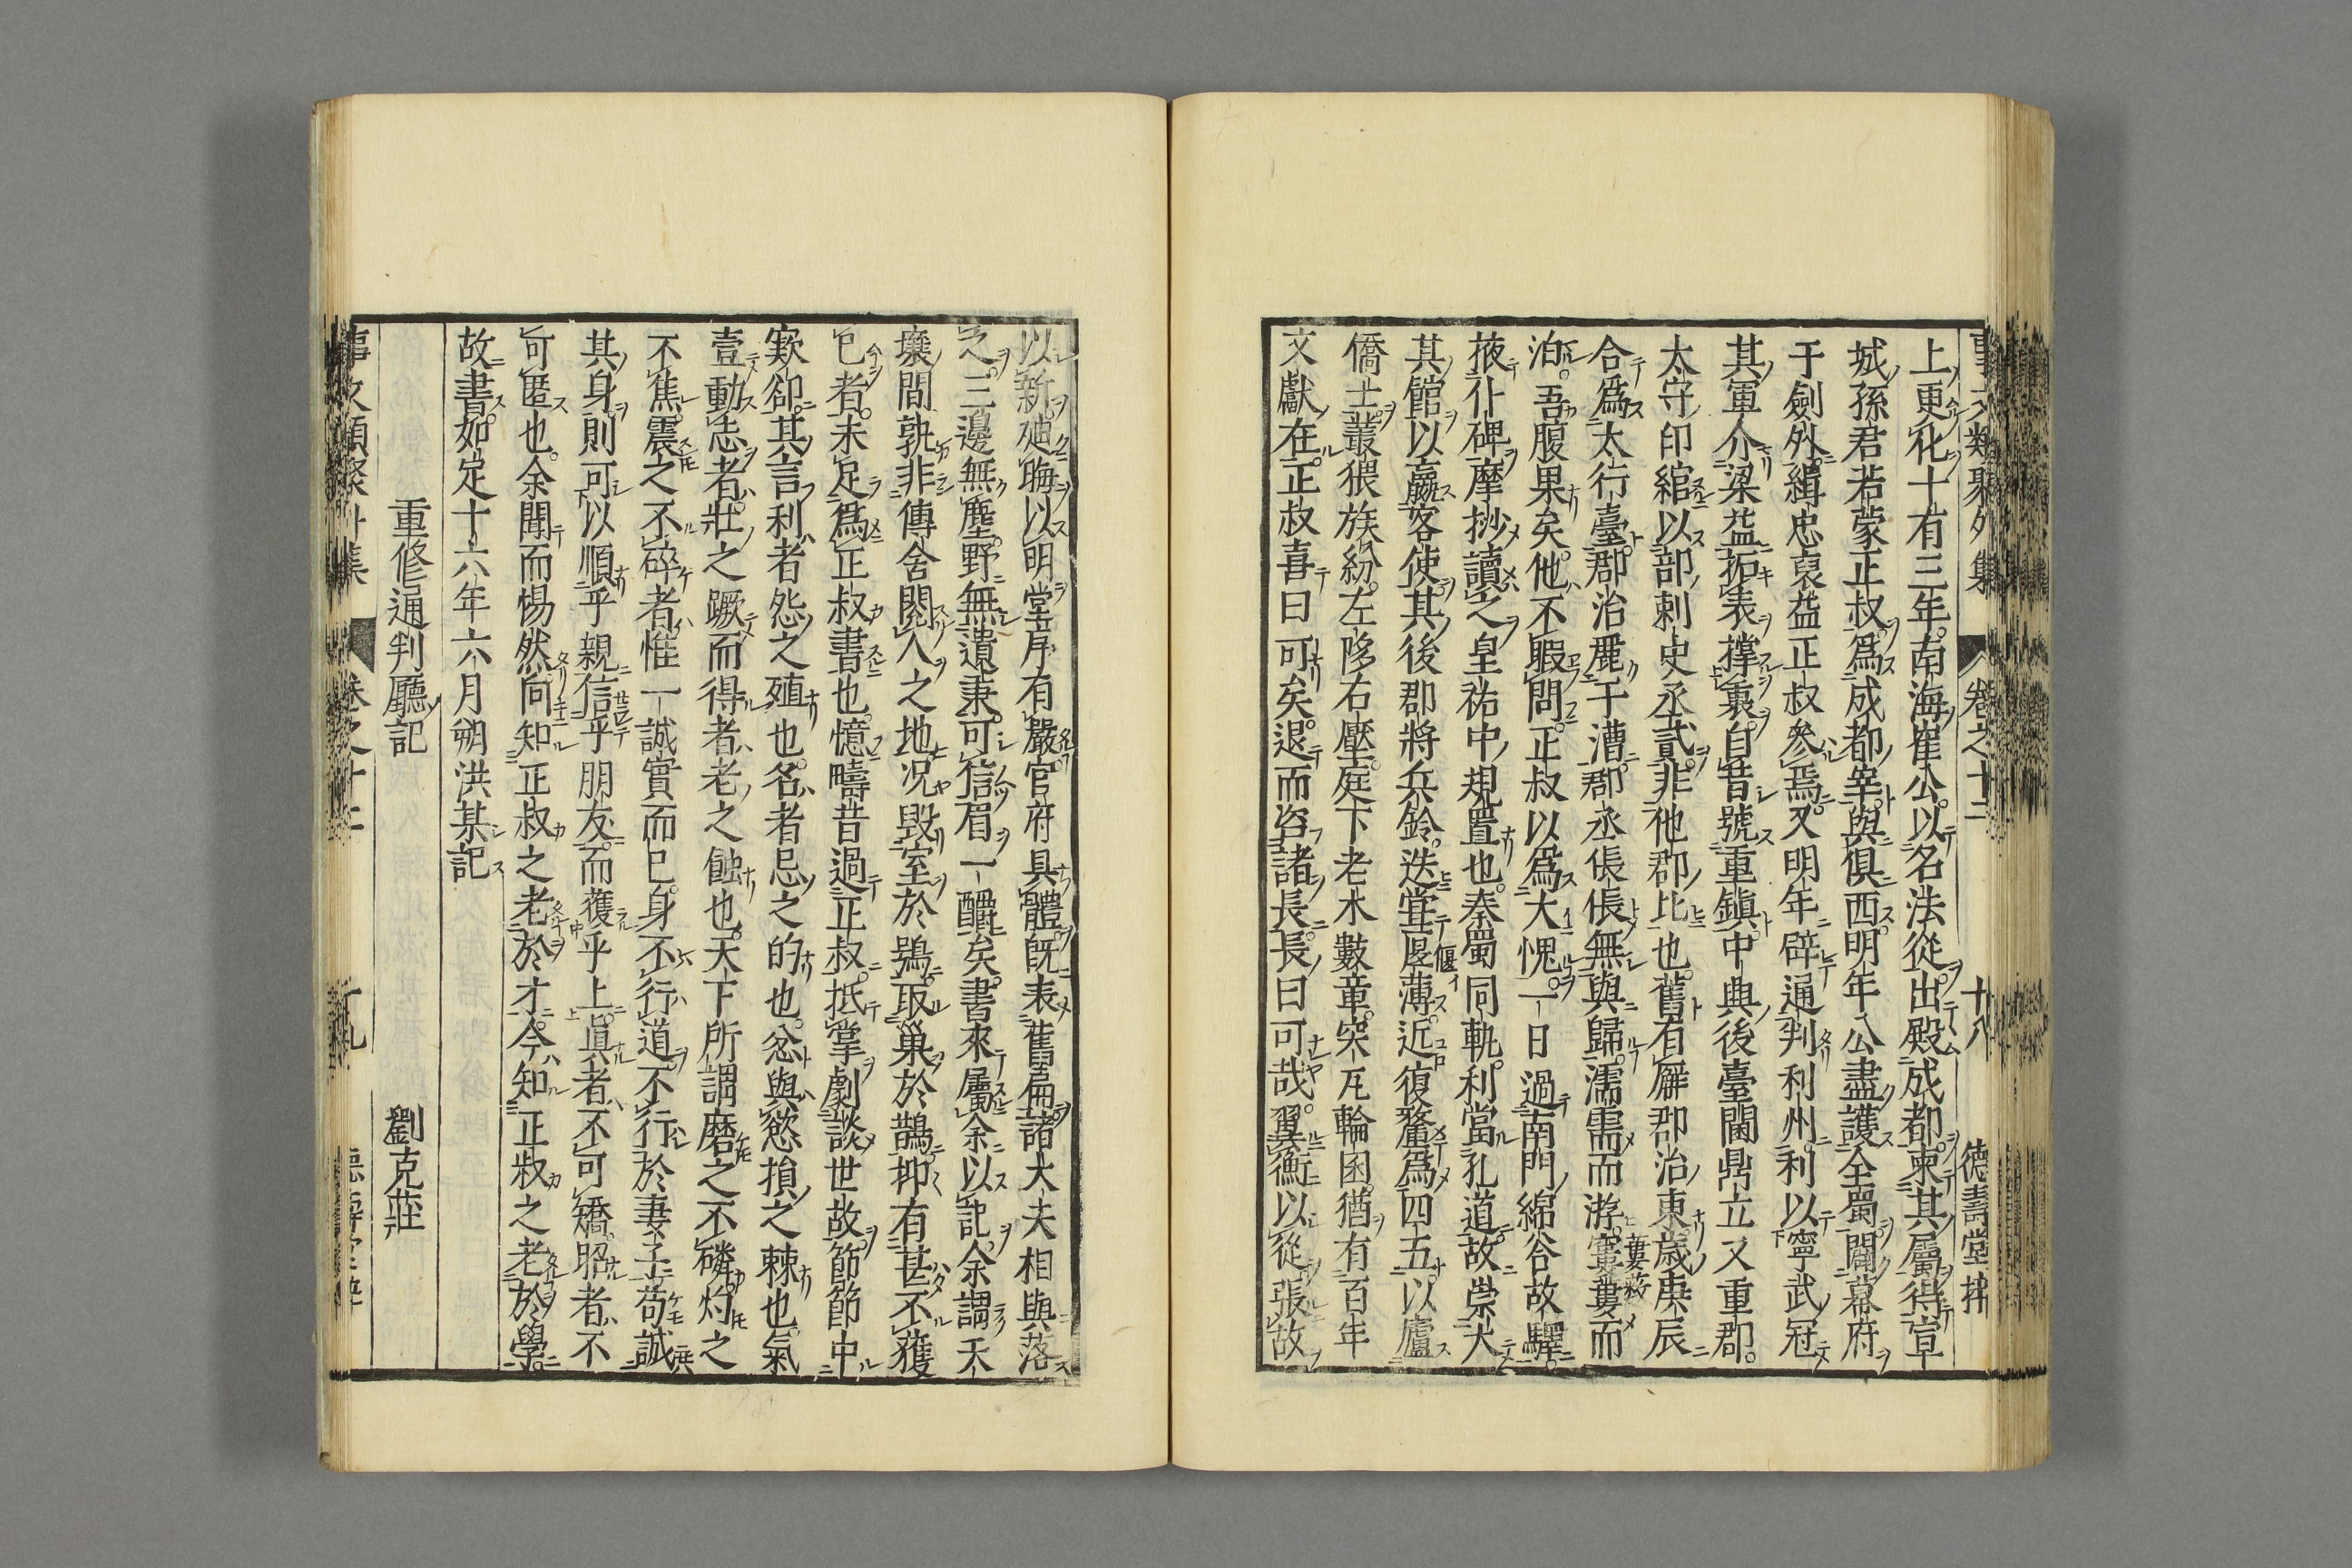 上更化十有三年南海崔公以名法從出殿成都柬其屬得宣
城孫君若蒙正叔爲成都宰與俱西明年公盡護全蜀闢幕府
于劍外緝忠裒益正叔參焉又明年辟通判利州利以寧武冠
其軍介梁益拓表撑裏自昔號重鎭中典後臺閫鼎立又重郡
太守印綰以部刺史丞貳非他郡比也舊有廨郡治東歲庚辰
合爲太行臺郡治麗于漕郡丞倀倀無與歸濡需而游寠蔞而
泊吾腹果矣他不暇問正叔以爲大愧一日過南門綿谷故驛
掖仆碑摩挱讀之皇祐中規置也秦蜀同軌利當孔道故崇大
其館以贏客使其後郡將兵鈴迭嘗匽薄近復鶩爲四五以廬
僑士叢猥族紛左陊右壓庭下老木數章突兀輪囷猶有百年
文獻在正叔喜曰可矣退而咨諸長長曰可哉翼衡以從張故
以新廸晦以明堂序有嚴官府具體旣表舊扁諸大夫相與落
之三邊無塵野無遺秉可信眉一釂矣書來屬余以記余謂天
壤間孰非傳舍閱人之地况毀室於鴞取巢於鵲抑有甚不獲
已者未足爲正叔書也憶疇昔過正叔抵掌劇談世故節節中
欵郤其言利者怨之殖也名者忌之的也忿與慾損之棘也氣
壹動志者壯之蹶而得者老之蝕也天下所謂磨之不磷灼之
不焦震之不碎者惟一誠實而已身不行道不行於妻子苟誠
其身則可以順乎親信乎朋友而獲乎上眞者不可矯昭者不
可匿也余聞而惕然向知正叔之老於才今知正叔之老於學
故書如定十六年六月朔洪某記
重修通判廳記 劉克莊
事文類聚外集 卷之十二 十八 德壽堂梓
事文類聚外集 卷之十二 十九